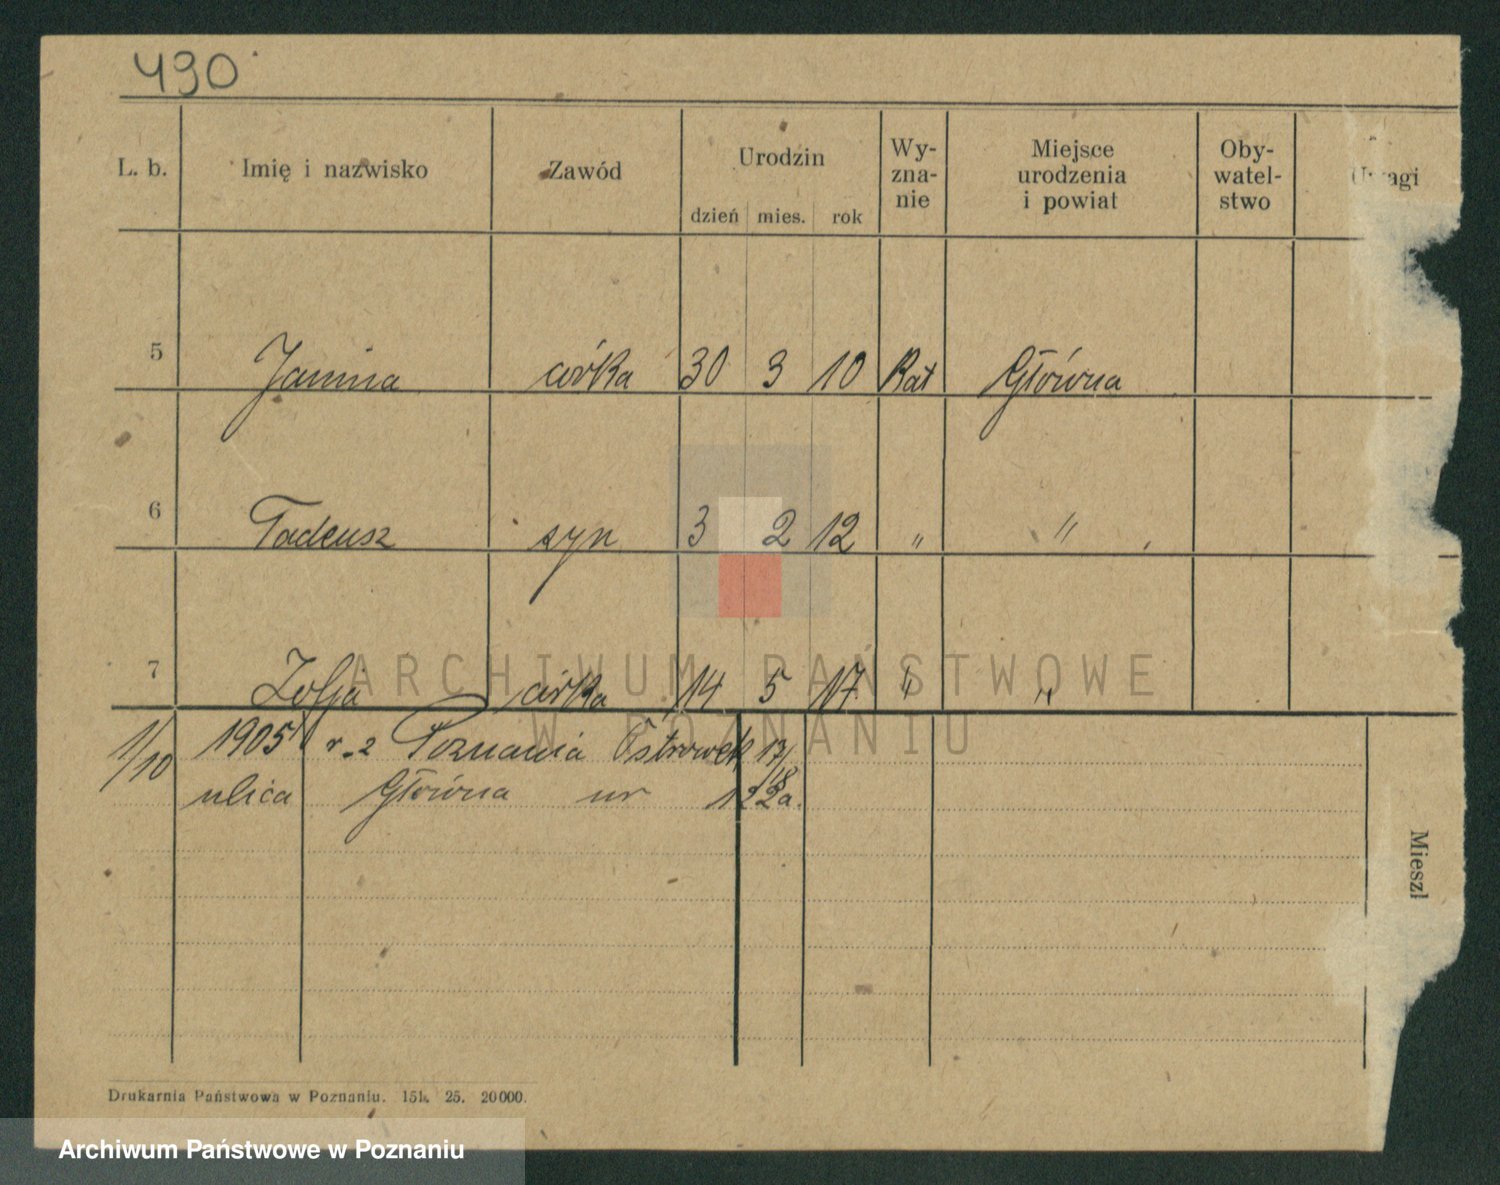 490
L. b. Imię i nazwisko Zawód Urodzin Wy- Miejsce Oby- Uwagi
zna- urodzenia watel-
nie i powiat stwo
dzień mies. rok
5 Janina córka 30 3 10 Kat Główna
6 Tadeusz syn 3 2 12 " "
7 Zofja córka 14 5 17 " "
ARCHIWUM PAŃSTWOWE
W POZNANIU
1/10 1905 r. z Poznania Ostrówek 17/18
ulica Główna nr
Mieszk
Drukarnia Państwowa w Poznaniu. 151. 25. 20000.
Archiwum Państwowe w Poznaniu